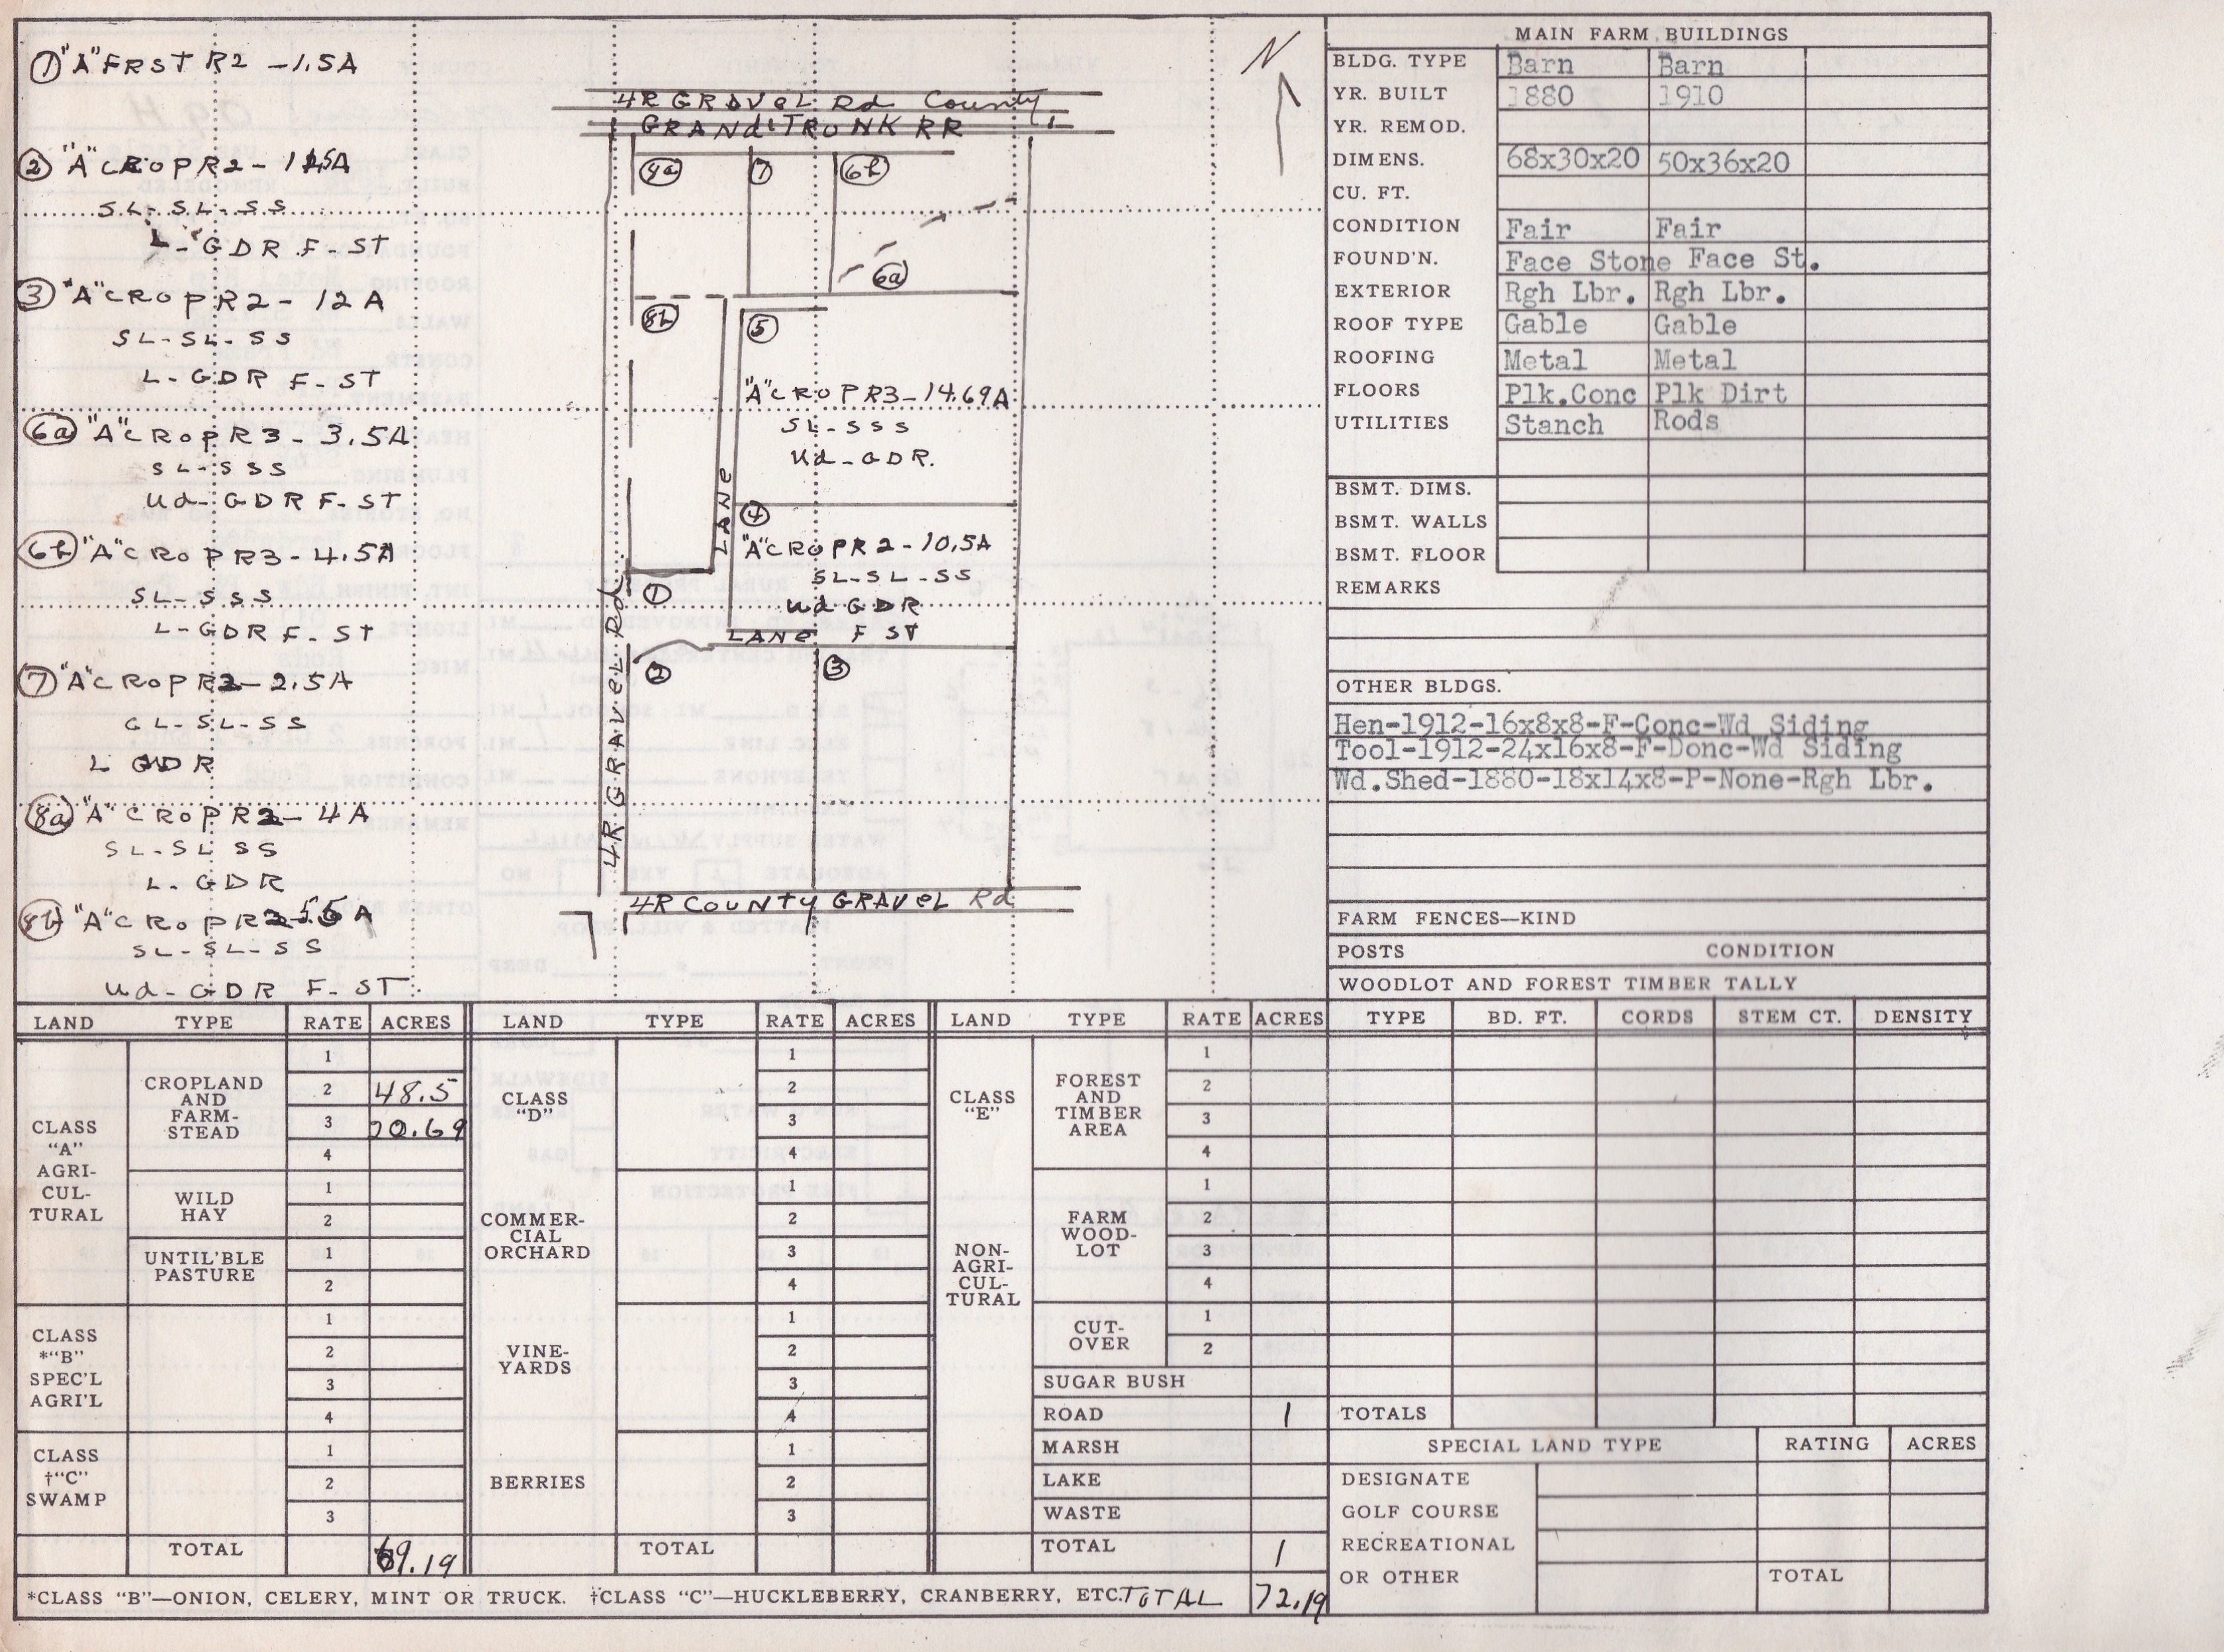 ① "A" FRST R2 - 1.5A
② "A" CROP R2 -
SL - SL - SS
L - GDR F - ST
③ "A" CROP R2 - 12 A
SL - SL - SS
L - GDR F - ST
6a "A" CROP R3 - 3.5A
SL - SSS
Ud - GDR F - ST
6b "A" CROP R3 - 4.5A
SL - SSS
L - GDR F - ST
⑦ "A" CROP R2 - 2.5A
CL - SL - SS
L GDR
8a "A" CROP R2 - 4A
SL - SL SS
L - GDR
8b "A" CROP R2 -
SL - SL - SS
Ud - GDR F - ST
N
4R GRAVEL Rd County
GRANd TRUNK RR
8a 7 6b
6a
8b 5
"A" CROP R3 - 14.69A
SL - SSS
Ud - GDR.
LANE
4
"A" CROP R2 - 10.5A
SL - SL - SS
Ud GDR
F ST
1
LANE
2 3
4R GRAVEL Rd
4R COUNTY GRAVEL Rd
MAIN FARM BUILDINGS
BLDG. TYPE Barn Barn
YR. BUILT 1880 1910
YR. REMOD.
DIMENS. 68x30x20 50x36x20
CU. FT.
CONDITION Fair Fair
FOUND'N. Face Stone Face St.
EXTERIOR Rgh Lbr. Rgh Lbr.
ROOF TYPE Gable Gable
ROOFING Metal Metal
FLOORS Plk.Conc Plk Dirt
UTILITIES Stanch Rods
BSMT. DIMS.
BSMT. WALLS
BSMT. FLOOR
REMARKS
OTHER BLDGS.
Hen-1912-16x8x8-F-Conc-Wd Siding
Tool-1912-24x16x8-F-Donc-Wd Siding
Wd.Shed-1880-18x14x8-P-None-Rgh Lbr.
FARM FENCES—KIND
POSTS CONDITION
WOODLOT AND FOREST TIMBER TALLY
TYPE BD. FT. CORDS STEM CT. DENSITY
TOTALS
SPECIAL LAND TYPE RATING ACRES
DESIGNATE
GOLF COURSE
RECREATIONAL
OR OTHER TOTAL
LAND TYPE RATE ACRES
CLASS
"A"
AGRI-
CUL-
TURAL
CROPLAND
AND
FARM-
STEAD
1
2 48.5
3 20.69
4
WILD
HAY
1
2
UNTIL'BLE
PASTURE
1
2
CLASS
*"B"
SPEC'L
AGRI'L
1
2
3
4
CLASS
†"C"
SWAMP
1
2
3
TOTAL 69.19
LAND TYPE RATE ACRES
CLASS
"D"
1
2
3
4
COMMER-
CIAL
ORCHARD
1
2
3
4
VINE-
YARDS
1
2
3
4
BERRIES
1
2
3
TOTAL
LAND TYPE RATE ACRES
CLASS
"E"
NON-
AGRI-
CUL-
TURAL
FOREST
AND
TIMBER
AREA
1
2
3
4
FARM
WOOD-
LOT
1
2
3
4
CUT-
OVER
1
2
SUGAR BUSH
ROAD 1
MARSH
LAKE
WASTE
TOTAL 1
*CLASS "B"—ONION, CELERY, MINT OR TRUCK. †CLASS "C"—HUCKLEBERRY, CRANBERRY, ETC. TOTAL 72.19